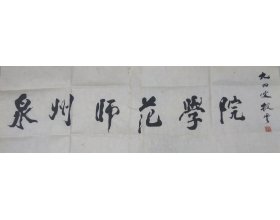 泉州师范學院
九四叟